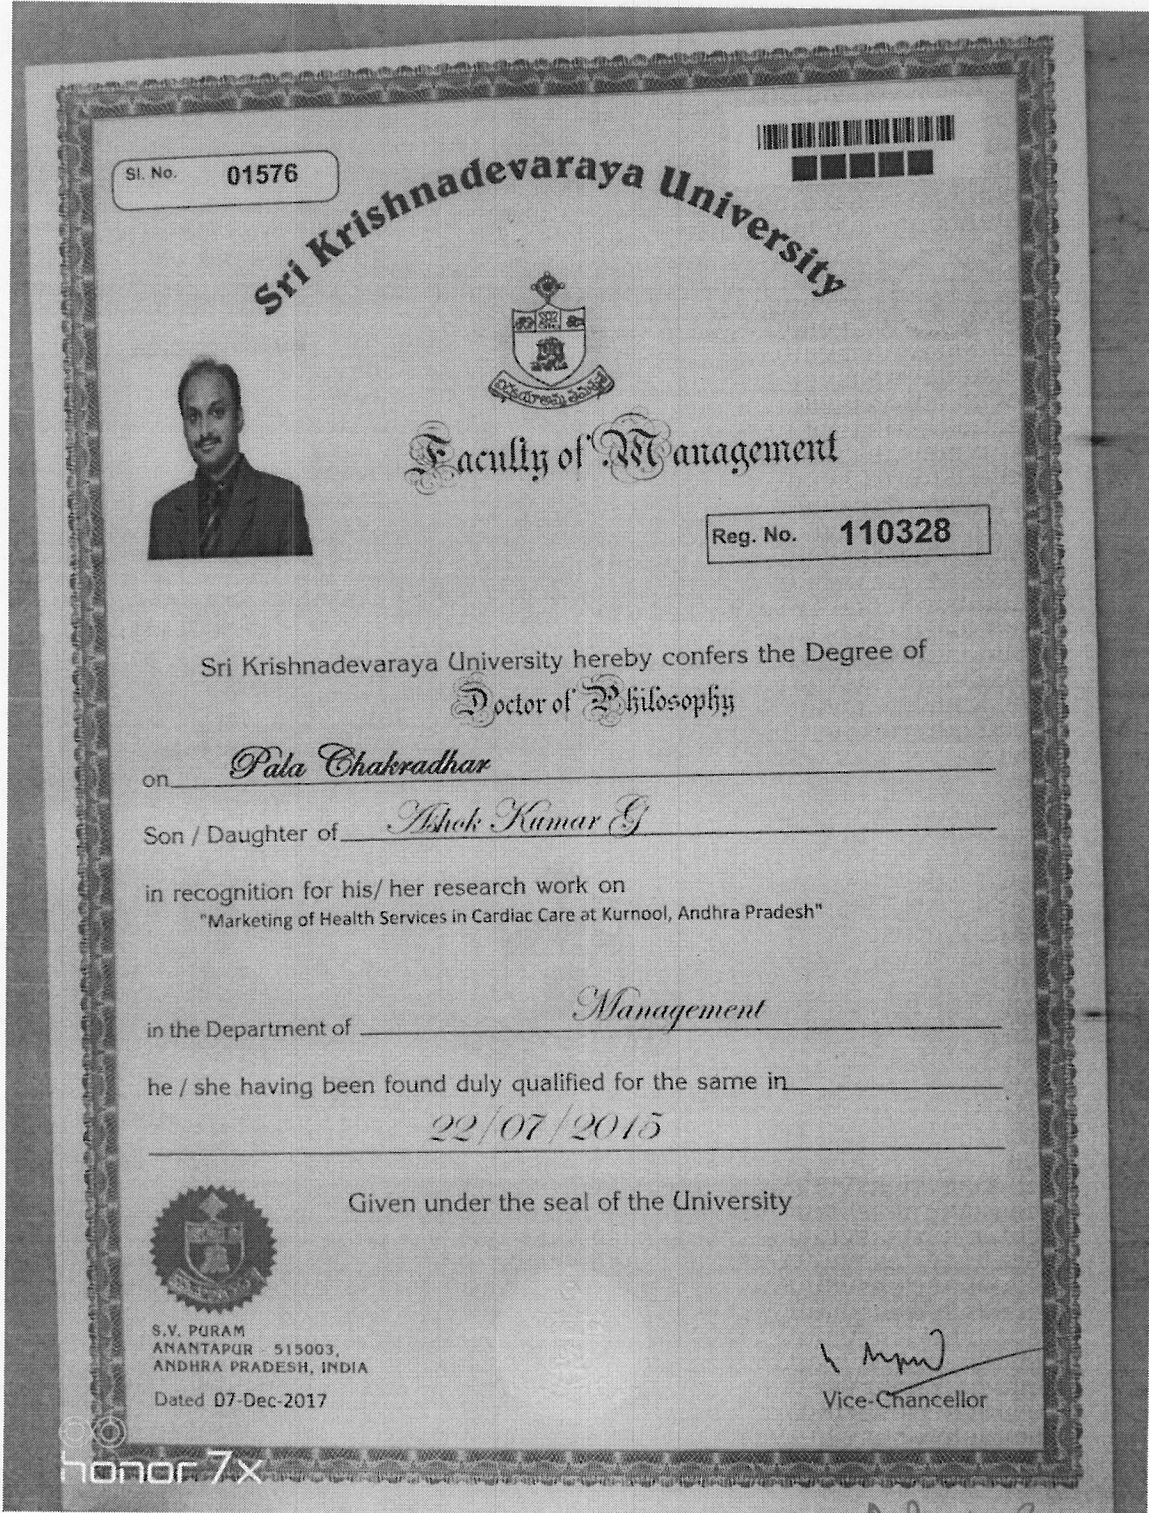 Sl. No. 01576
Sri Krishnadevaraya University
Faculty of Management
Reg. No. 110328
Sri Krishnadevaraya University hereby confers the Degree of
Doctor of Philosophy
on Pala Chakradhar
Son / Daughter of Ashok Kumar G
in recognition for his/ her research work on
"Marketing of Health Services in Cardiac Care at Kurnool, Andhra Pradesh"
in the Department of Management
he / she having been found duly qualified for the same in
22/07/2015
Given under the seal of the University
S.V. PURAM
ANANTAPUR - 515003,
ANDHRA PRADESH, INDIA
Dated 07-Dec-2017
Vice-Chancellor
honor 7x